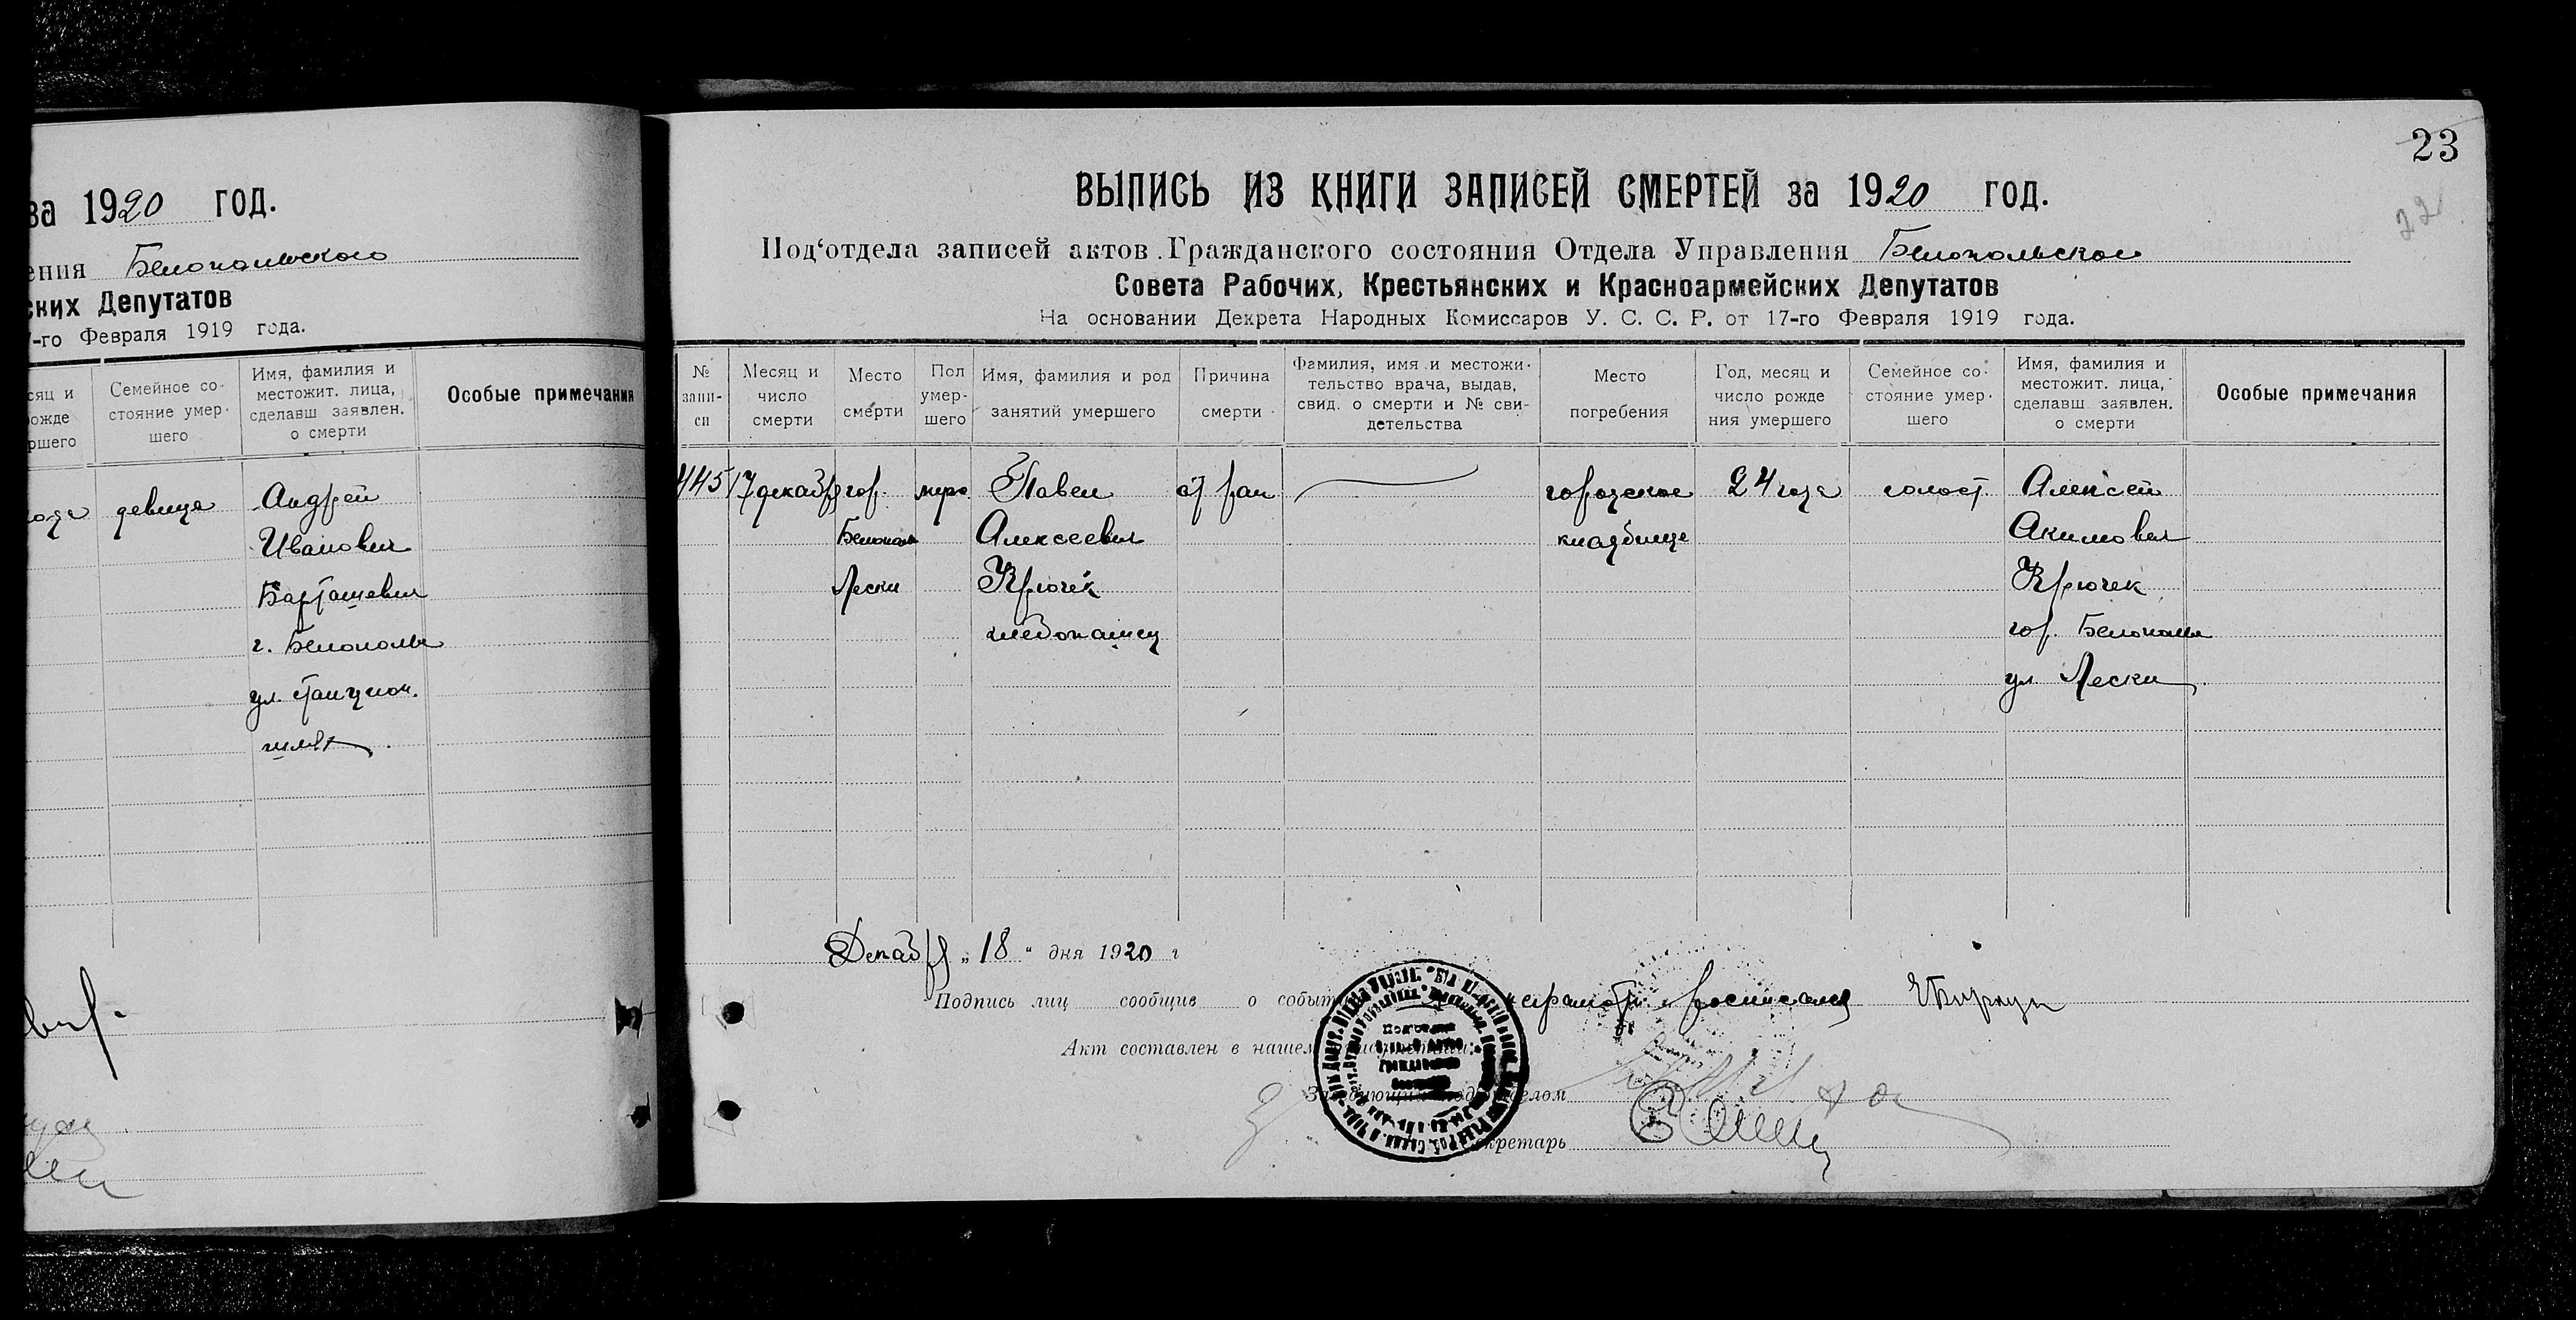 за 1920 год.
ения Белопольского
ских Депутатов
7-го Февраля 1919 года.
сяц и
рожде
ршего
Семейное со-
стояние умер-
шего
Имя, фамилия и
местожит. лица,
сделавш заявлен.
о смерти
Особые примечания
года девица Андрей
Иванович
Барташевич
г. Белополье
ул. Станцион.
шлях
23
22
ВЫПИСЬ ИЗ КНИГИ ЗАПИСЕЙ СМЕРТЕЙ за 1920 год.
Под‘отдела записей актов Гражданского состояния Отдела Управления Белопольского
Совета Рабочих, Крестьянских и Красноармейских Депутатов
На основании Декрета Народных Комиссаров У. С. С. Р. от 17-го Февраля 1919 года.
№
запи-
си
Месяц и
число
смерти
Место
смерти
Пол
умер-
шего
Имя, фамилия и род
занятий умершего
Причина
смерти
Фамилия, имя и местожи-
тельство врача, выдав,
свид. о смерти и № сви-
детельства
Место
погребения
Год, месяц и
число рожде
ния умершего
Семейное со-
стояние умер-
шего
Имя, фамилия и
местожит. лица,
сделавш заявлен.
о смерти
Особые примечания
445 17 декабря гор. муж. Павел от ран городское 24 года холост Алексей
Белополье Алексеевич кладбище Акимович
Лески Крючек Крючек
хлебопашец гор. Белополье
ул Лески
Декабря „ 18 “ дня 1920 г
Подпись лиц сообщив о событ неграмотн. росписался
Акт составлен в нашем
Заведующий Подотделом
Секретарь